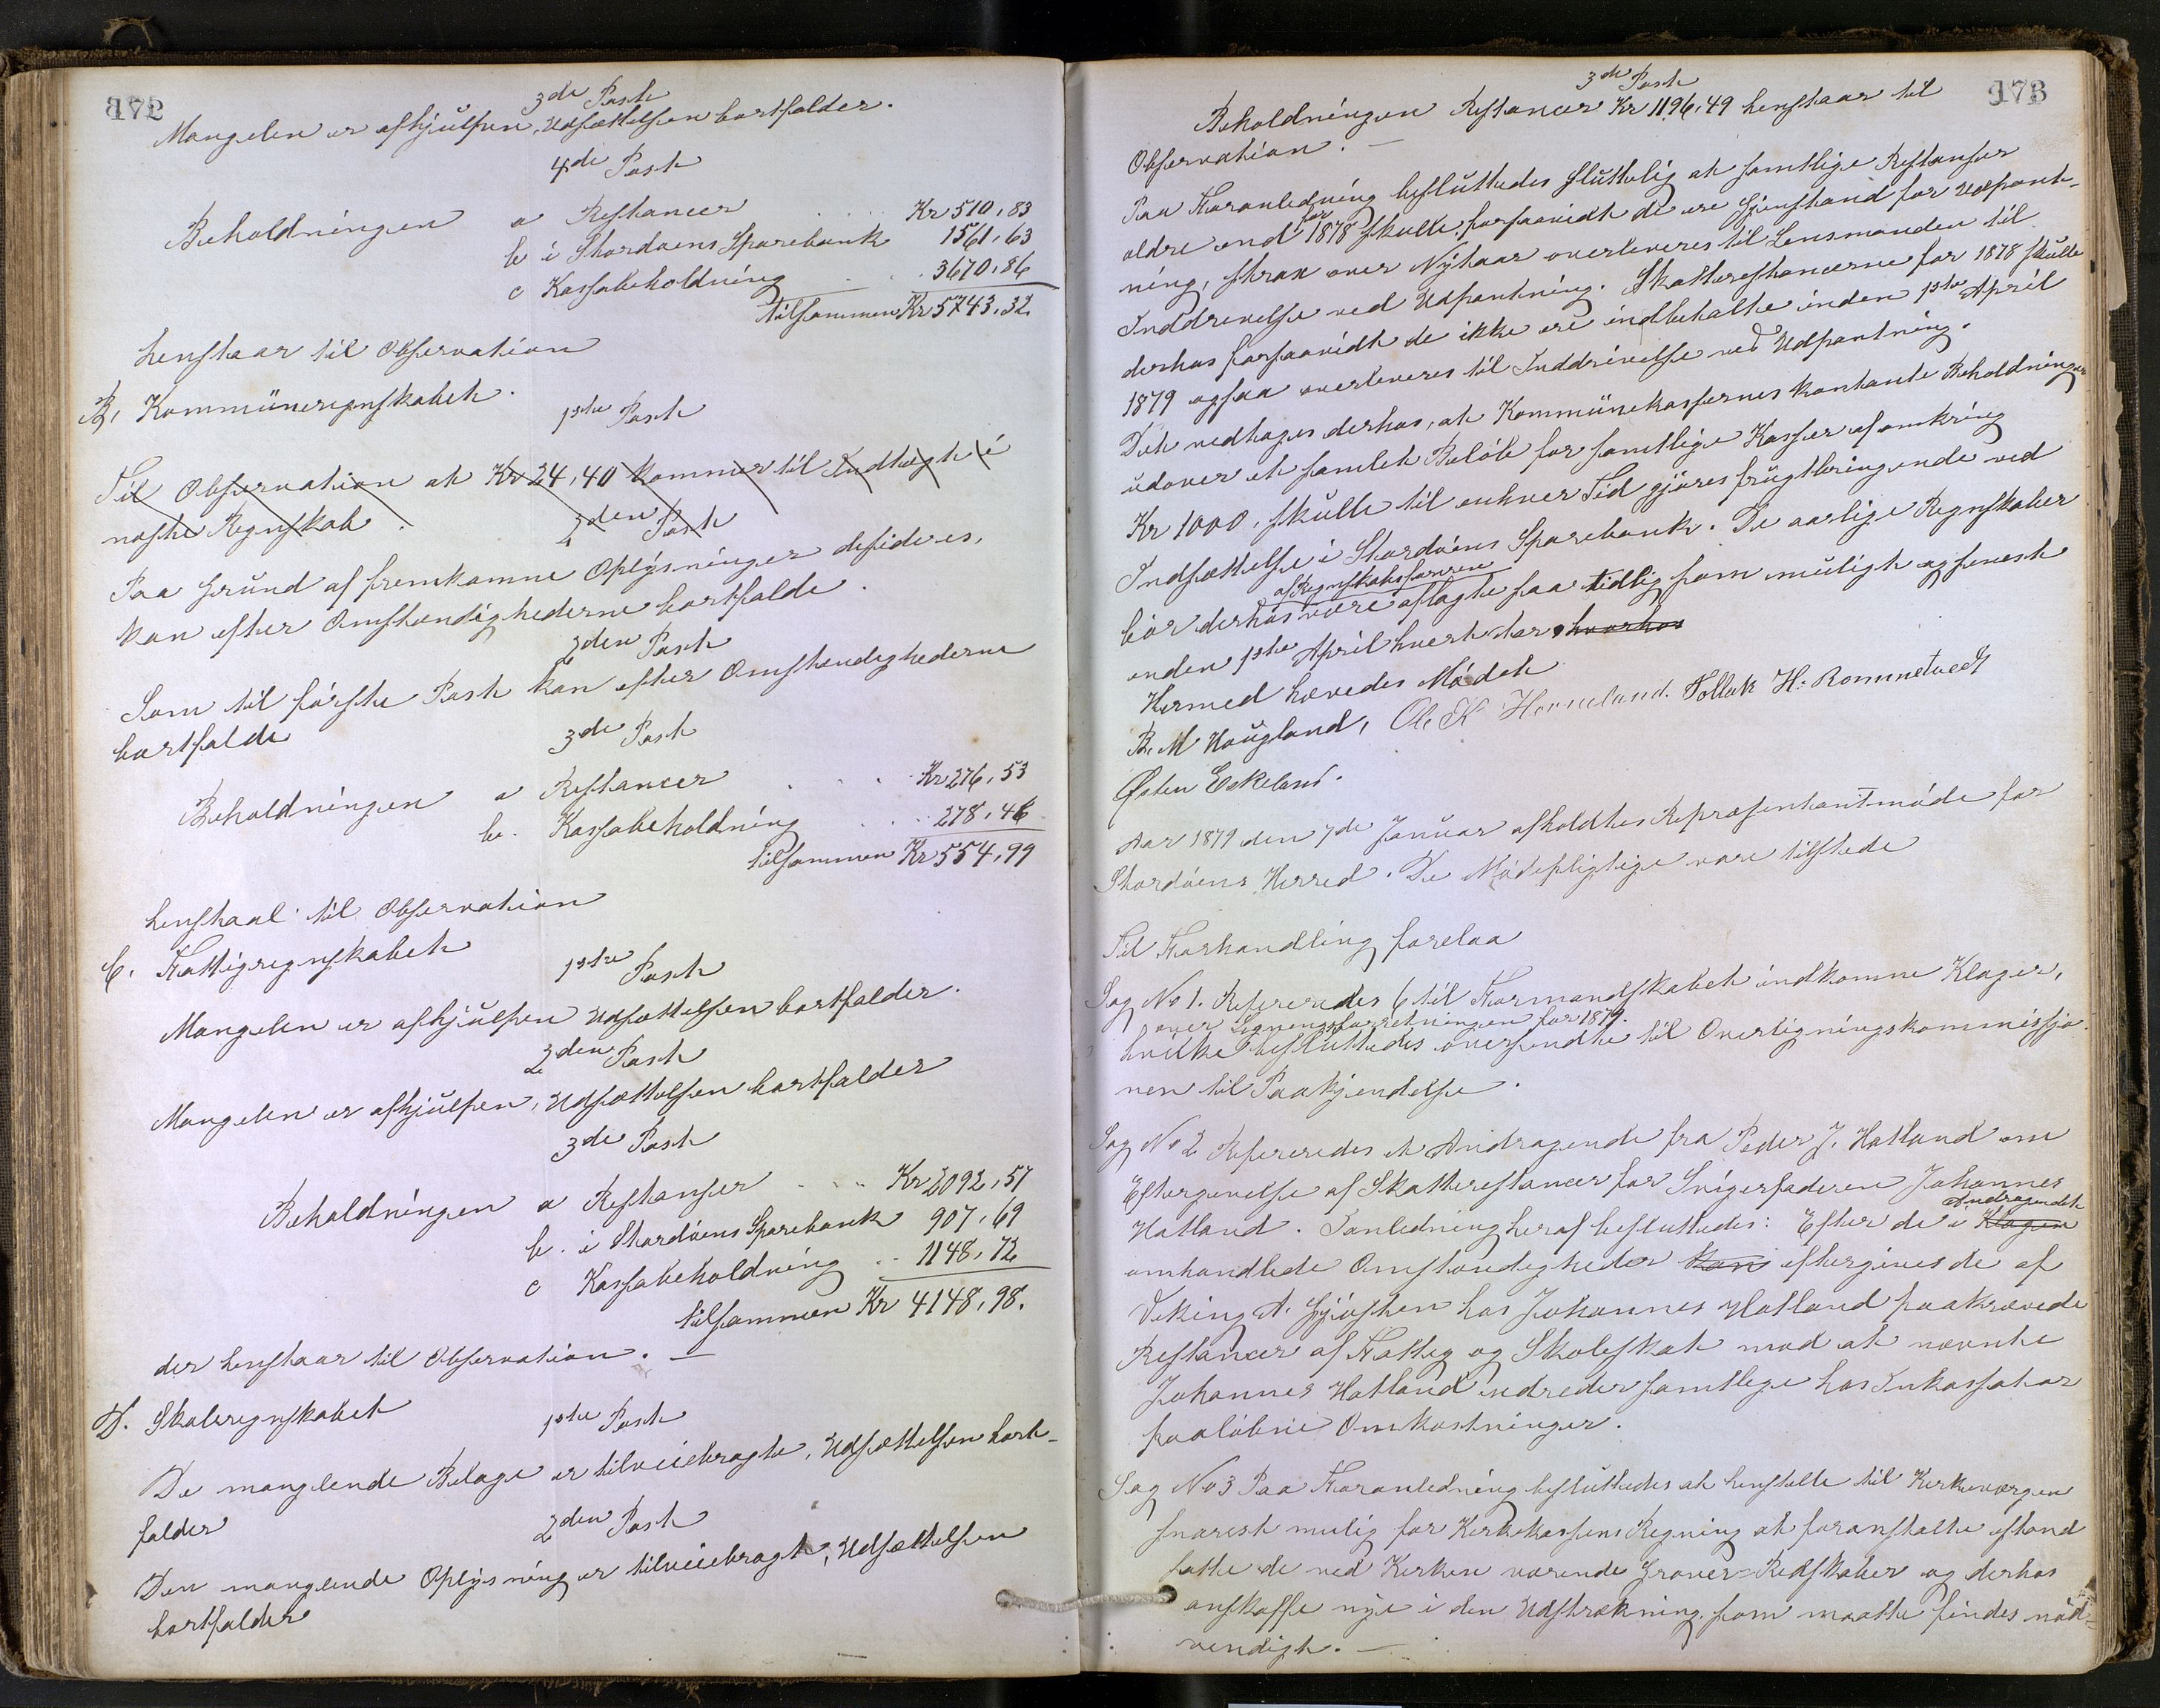 172
3die Post
Mangelen er afhjulpen, Udsættelsen bortfalder.
4de Post
Beholdningen a Restancer Kr 510,83
b i Stordøens Sparebank 1561,63
c Kassabeholdning 3670,86
tilsammen Kr 5743,32
henstaar til Observation
B, Kommuneregnskabet.
1ste Post
Til Observation at Kr 24,40 kommer til Indtægt i
næste Regnskab.
2den Post
Paa Grund af fremkomne Oplysninger desideres,
kan efter Omstændighederne bortfalde.
2den Post
Som til første Post kan efter Omstændighederne
bortfalde
3die Post
Beholdningen a Restancer Kr 276,53
b. Kassabeholdning 278,46
tilsammen Kr 554,99
henstaal til Observation
C. Fattigregnskabet
1ste Post
Mangelen er afhjulpen Udsættelsen bortfalder.
2den Post
Mangelen er afhjulpen, Udsættelsen bortfalder
3die Post
Beholdningen a Restanser Kr 2092,57
b. i Stordøens Sparebank 907,69
c Kassabeholdning 1148,72
tilsammen Kr 4148,98.
der henstaar til Observation. —
D. Skoleregnskabet
1ste Post
De manglende Bilage er tilveiebragte, Udsættelsen bort-
falder
2den Post
Den manglende Oplysning er tilveiebragt, Udsættelsen
bortfalder
173
3die Post
Beholdningen Restancer Kr 1196,49 henstaar til
Observation. —
Paa Foranledning besluttedes sluttelig at samtlige Restanser
ældre end for 1878 skulle, forsaavidt de ere Gjenstand for Udpant-
ning, strax over Nytaar overleveres til Lensmanden til
Inddrivelse ved Udpantning. Skatterestancerne for 1878 skulle
derhos forsaavidt de ikke ere indbetalte inden 1ste April
1879 ogsaa overleveres til Inddrivelse ved Udpantning.
Det vedtoges derhos, at Kommunekassernes kontante Beholdninger
udover et samlet Beløb for samtlige Kasser af omkring
Kr 1000, skulle til enhver Tid gjøres frugtbringende ved
Indsættelse i Stordøens Sparebank. De aarlige Regnskaber
af Regnskabsføreren
bør derhos være aflagte saa tidlig som muligt og senest
inden 1ste April hvert Aar, hvorhos
Hermed hævedes Mødet
B. M Haugland, Ole K Horneland. Tollak H: Rommetvedt
Østen Eskeland.
Aar 1879 den 7de Januar afholdtes Repræsentantmøde for
Stordøens Herred. De Mødepligtige vare tilstede
Til Forhandling forelaa
Sag No 1. Refereredes 6 til Formandskabet indkomne Klager,
over Ligningsforretningen for 1879.
hvilke besluttedes oversendte til Overligningskommissjo
nen til Paakjendelse.
Sag No 2 Refereredes et Andragende fra Peder J. Hatland om
Eftergivelse af Skatterestancer for Svigerfaderen Johannes
Andragendet
Hatland. I Anledning heraf besluttedes: Efter de i Klagen
omhandlede Omstændigheder kan eftergives de af
Viking A. Gjøsten hos Johannes Hatland paakrævede
Restancer af Fattig og Skoleskat mod at nævnte
Johannes Hatland udreder samtlige hos Inkassator
paaløbne Omkostninger.
Sag No 3 Paa Foranledning besluttedes at henstille til Kirkeværgen
snarest mulig for Kirkekassens Regning at foranstalte istand
satte de ved Kirken værende Graver-Redskaber og derhos
anskaffe nye i den Udstrækning som maatte findes nød-
vendigt. —